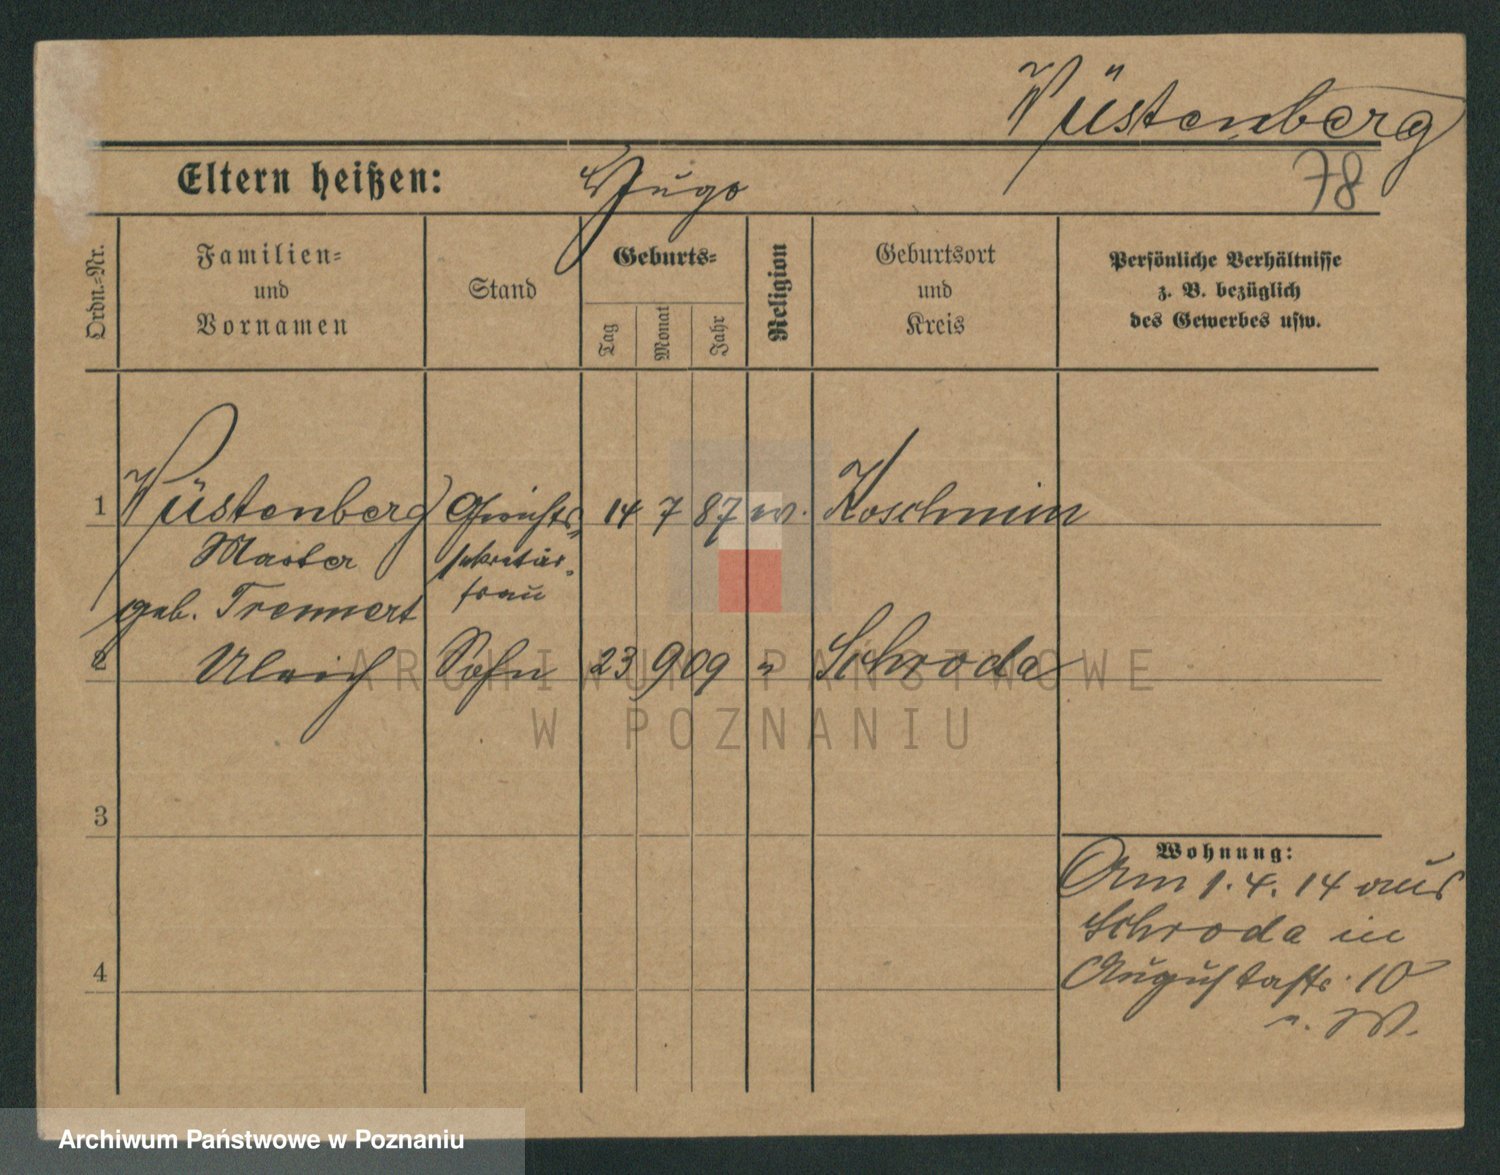 Wüstenberg
78
Eltern heißen: Hugo
Ordn.-Nr.
Familien-
und
Vornamen
Stand
Geburts-
Tag
Monat
Jahr
Religion
Geburtsort
und
Kreis
Persönliche Verhältnisse
z. B. bezüglich
des Gewerbes usw.
1 Wüstenberg Gerichts- 14 7 87 ev. Koschmin
sekretärs-
geb. Trennert frau
2 Ulrich Sohn 23 9 09 " Schroda
3
4
Wohnung:
Am 1.4.14 aus
Schroda in
Augustastr. 10
ARCHIWUM PAŃSTWOWE
W POZNANIU
Archiwum Państwowe w Poznaniu